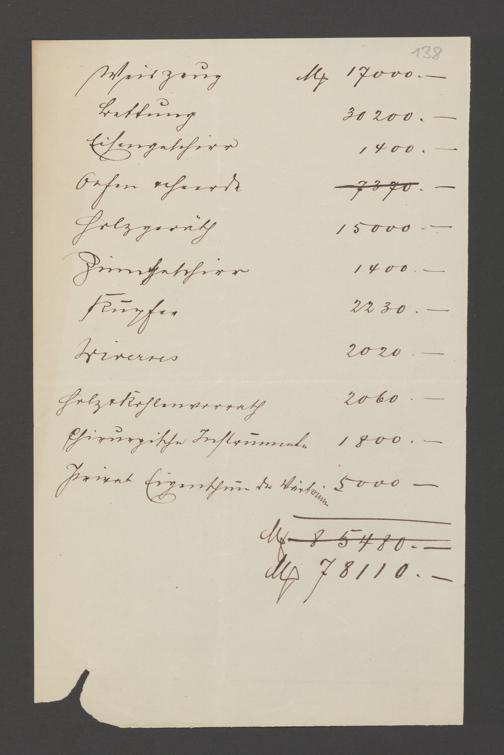 138
Weiszeug M 17000.—
Bettung 30200.—
Eisengeschirr 1400.—
Oefen & Heerde 7370.—
Holzgeräth 15000.—
Zinngeschirr 1400.—
Kupfer 2230.—
Diverses 2020.—
Holz & Kohlenvorrath 2060.—
Chirurgische Instrumente 1800.—
Privat Eigenthum der 5000.—
M 85480.—
M 78110.—